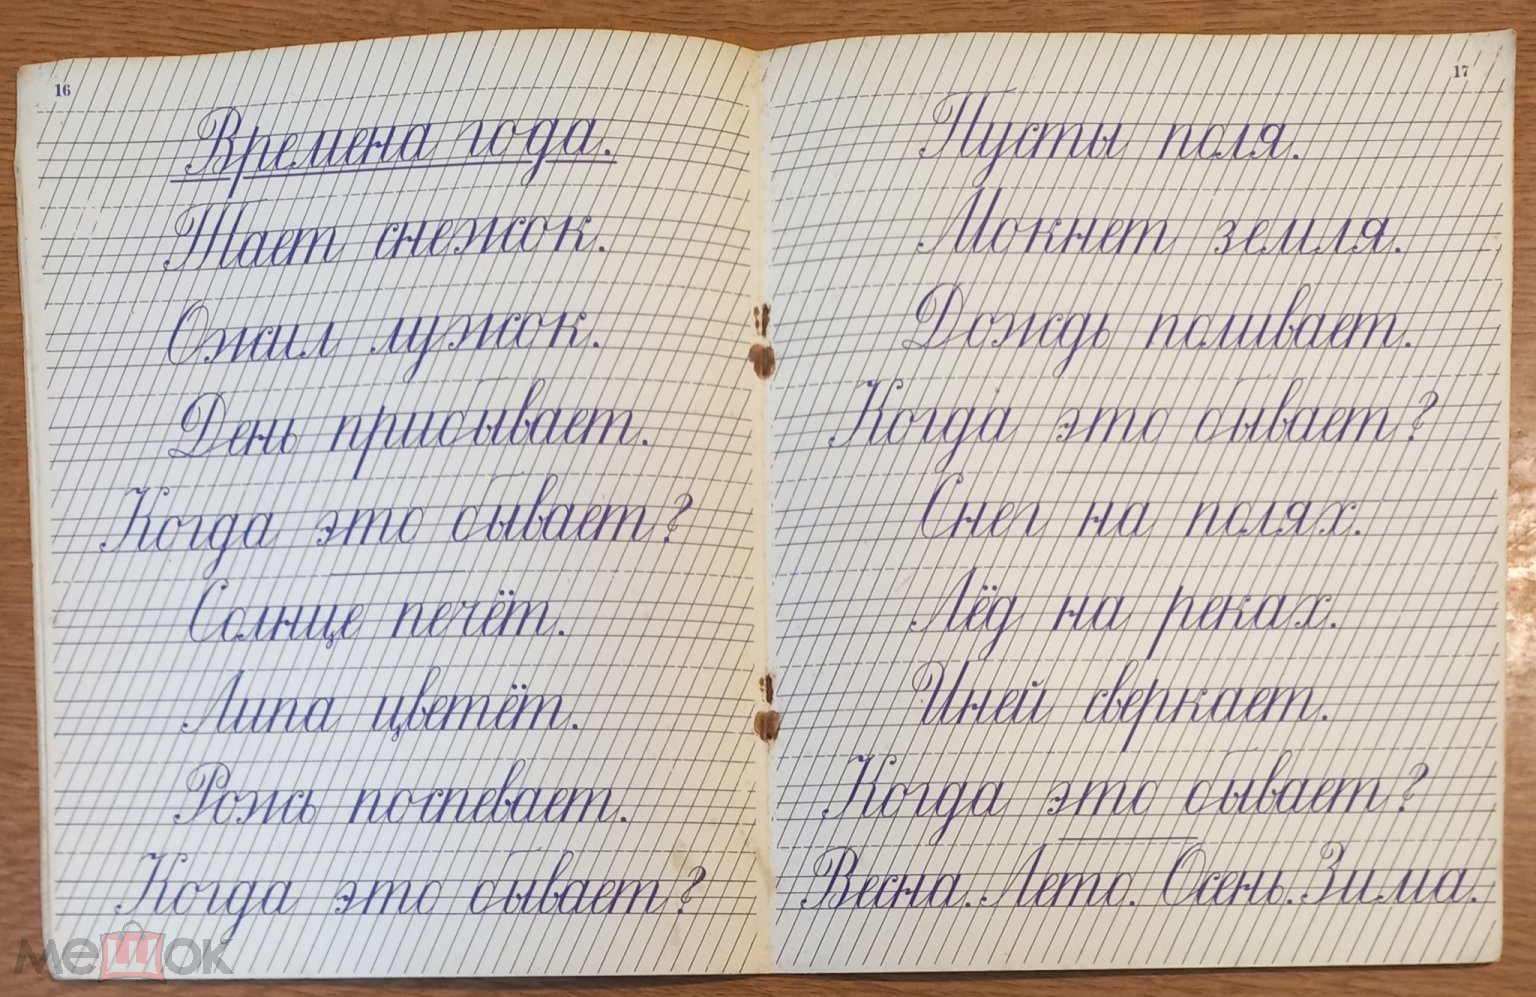 16
Времена года.
Тает снежок.
Ожил лужок.
День прибывает.
Когда это бывает?
Солнце печёт.
Липа цветёт.
Рожь поспевает.
Когда это бывает?
мешок
17
Пусты поля.
Мокнет земля.
Дождь поливает.
Когда это бывает?
Снег на полях.
Лёд на реках.
Иней сверкает.
Когда это бывает?
Весна. Лето. Осень. Зима.